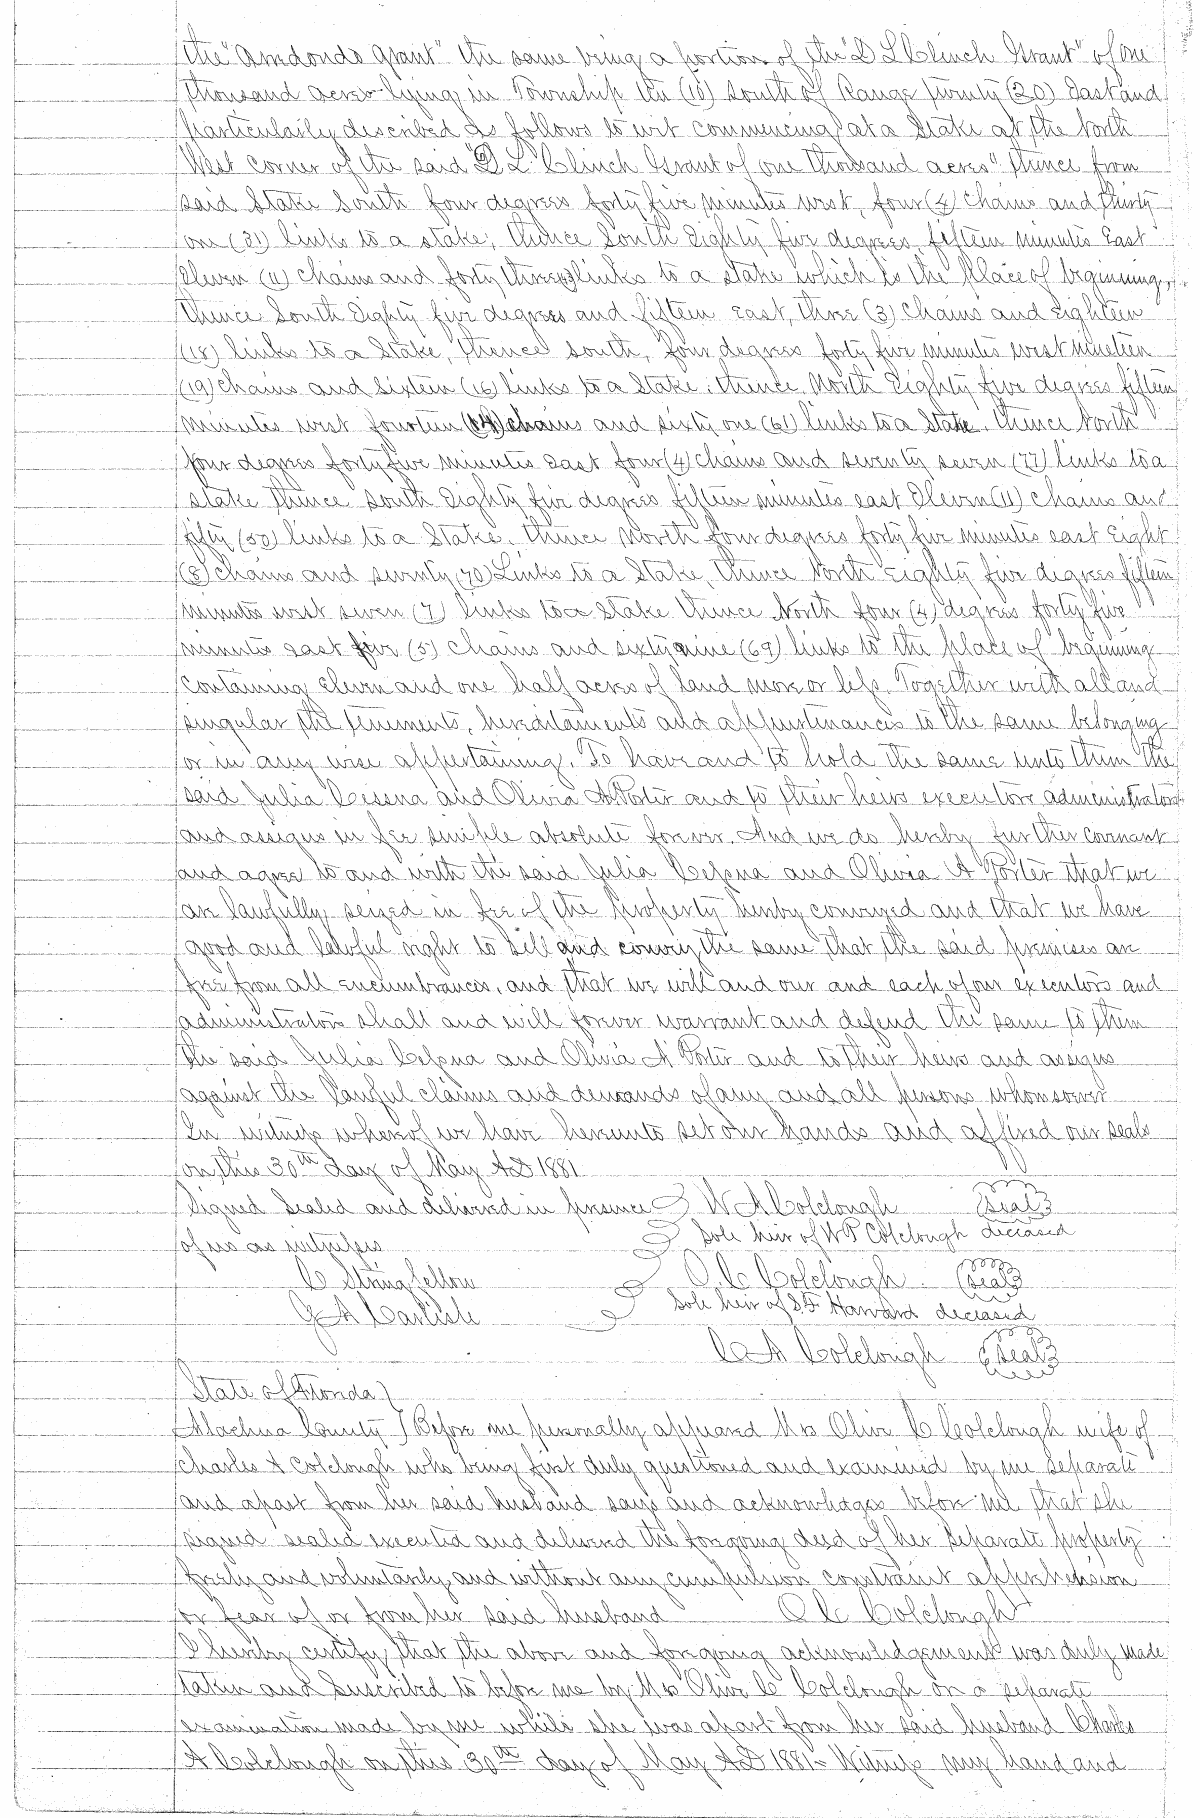 the "Arredondo Grant" the same being a portion of the "D L Clinch Grant" of one
thousand acres lying in Township ten (10) South of Range twenty (20) East and
particularily described as follows to wit commencing at a Stake at the North
West corner of the said "D L Clinch Grant of one thousand acres" thence from
said Stake South four degrees forty five minutes west, four (4) chains and thirty
one (31) links to a stake; thence South Eighty five degrees, fifteen minutes East
Eleven (11) chains and forty three (43) links to a stake which is the place of beginning,
thence South Eighty five degrees and fifteen east, three (3) chains and eighteen
(18) links to a Stake, thence south, four degrees forty five minutes west nineteen
(19) chains and sixteen (16) links to a Stake, thence North Eighty five degrees fifteen
minutes west fourteen (14) chains and sixty one (61) links to a Stake, thence North
four degrees forty five minutes east four (4) chains and seventy seven (77) links to a
stake thence south Eighty five degrees fifteen minutes east Eleven (11) chains and
fifty (50) links to a Stake, thence North four degrees forty five minutes east Eight
(8) chains and seventy (70) Links to a Stake, thence North Eighty five degrees fifteen
minutes west seven (7) links to a Stake thence North four (4) degrees forty five
minutes east five (5) chains and sixty nine (69) links to the place of beginning
containing Eleven and one half acres of land more or less. Together with all and
singular the tenements, hereditaments and appurtenances to the same belonging
or in any wise appertaining. To have and to hold the same unto them the
said Julia Cessna and Olivia A Porter and to their heirs executors administrators
and assigns in fee simple absolute forever. And we do hereby further covenant
and agree to and with the said Julia Cessna and Olivia A Porter that we
are lawfully seized in fee of the property hereby conveyed and that we have
good and lawful right to sell and convey the same, that the said premises are
free from all encumbrances, and that we will and our and each of our executors and
administrators shall and will forever warrant and defend the same to them
the said Julia Cessna and Olivia A Porter and to their heirs and assigns
against the lawful claims and demands of any and all persons whomsoever
In witness whereof we have hereunto set our hands and affixed our seals
on this 30th day of May AD 1881
Signed Sealed and delivered in presence W A Colclough (seal)
of us as witnesses Sole heir of W P Colclough deceased
C Stringfellow O. C Colclough (seal)
G A Carlisle Sole heir of S. F Harvard deceased
C A Colclough (seal)
State of Florida
Alachua County Before me personally appeared Mrs Olive C Colclough wife of
Charles A Colclough who being first duly questioned and examined by me separate
and apart from her said husband says and acknowledges before me that she
signed sealed executed and delivered the foregoing deed of her separate property
freely and voluntarily and without any cumpulsion constraint apprehension
or fear of or from her said husband O C Colclough
I hereby certify that the above and foregoing acknowledgement was duly made
taken and Suscribed to before me by Mrs Olive C Colclough on a separate
examination made by me while she was apart from her said husband Charles
A Colclough on this 30th day of May AD 1881 - Witness my hand and